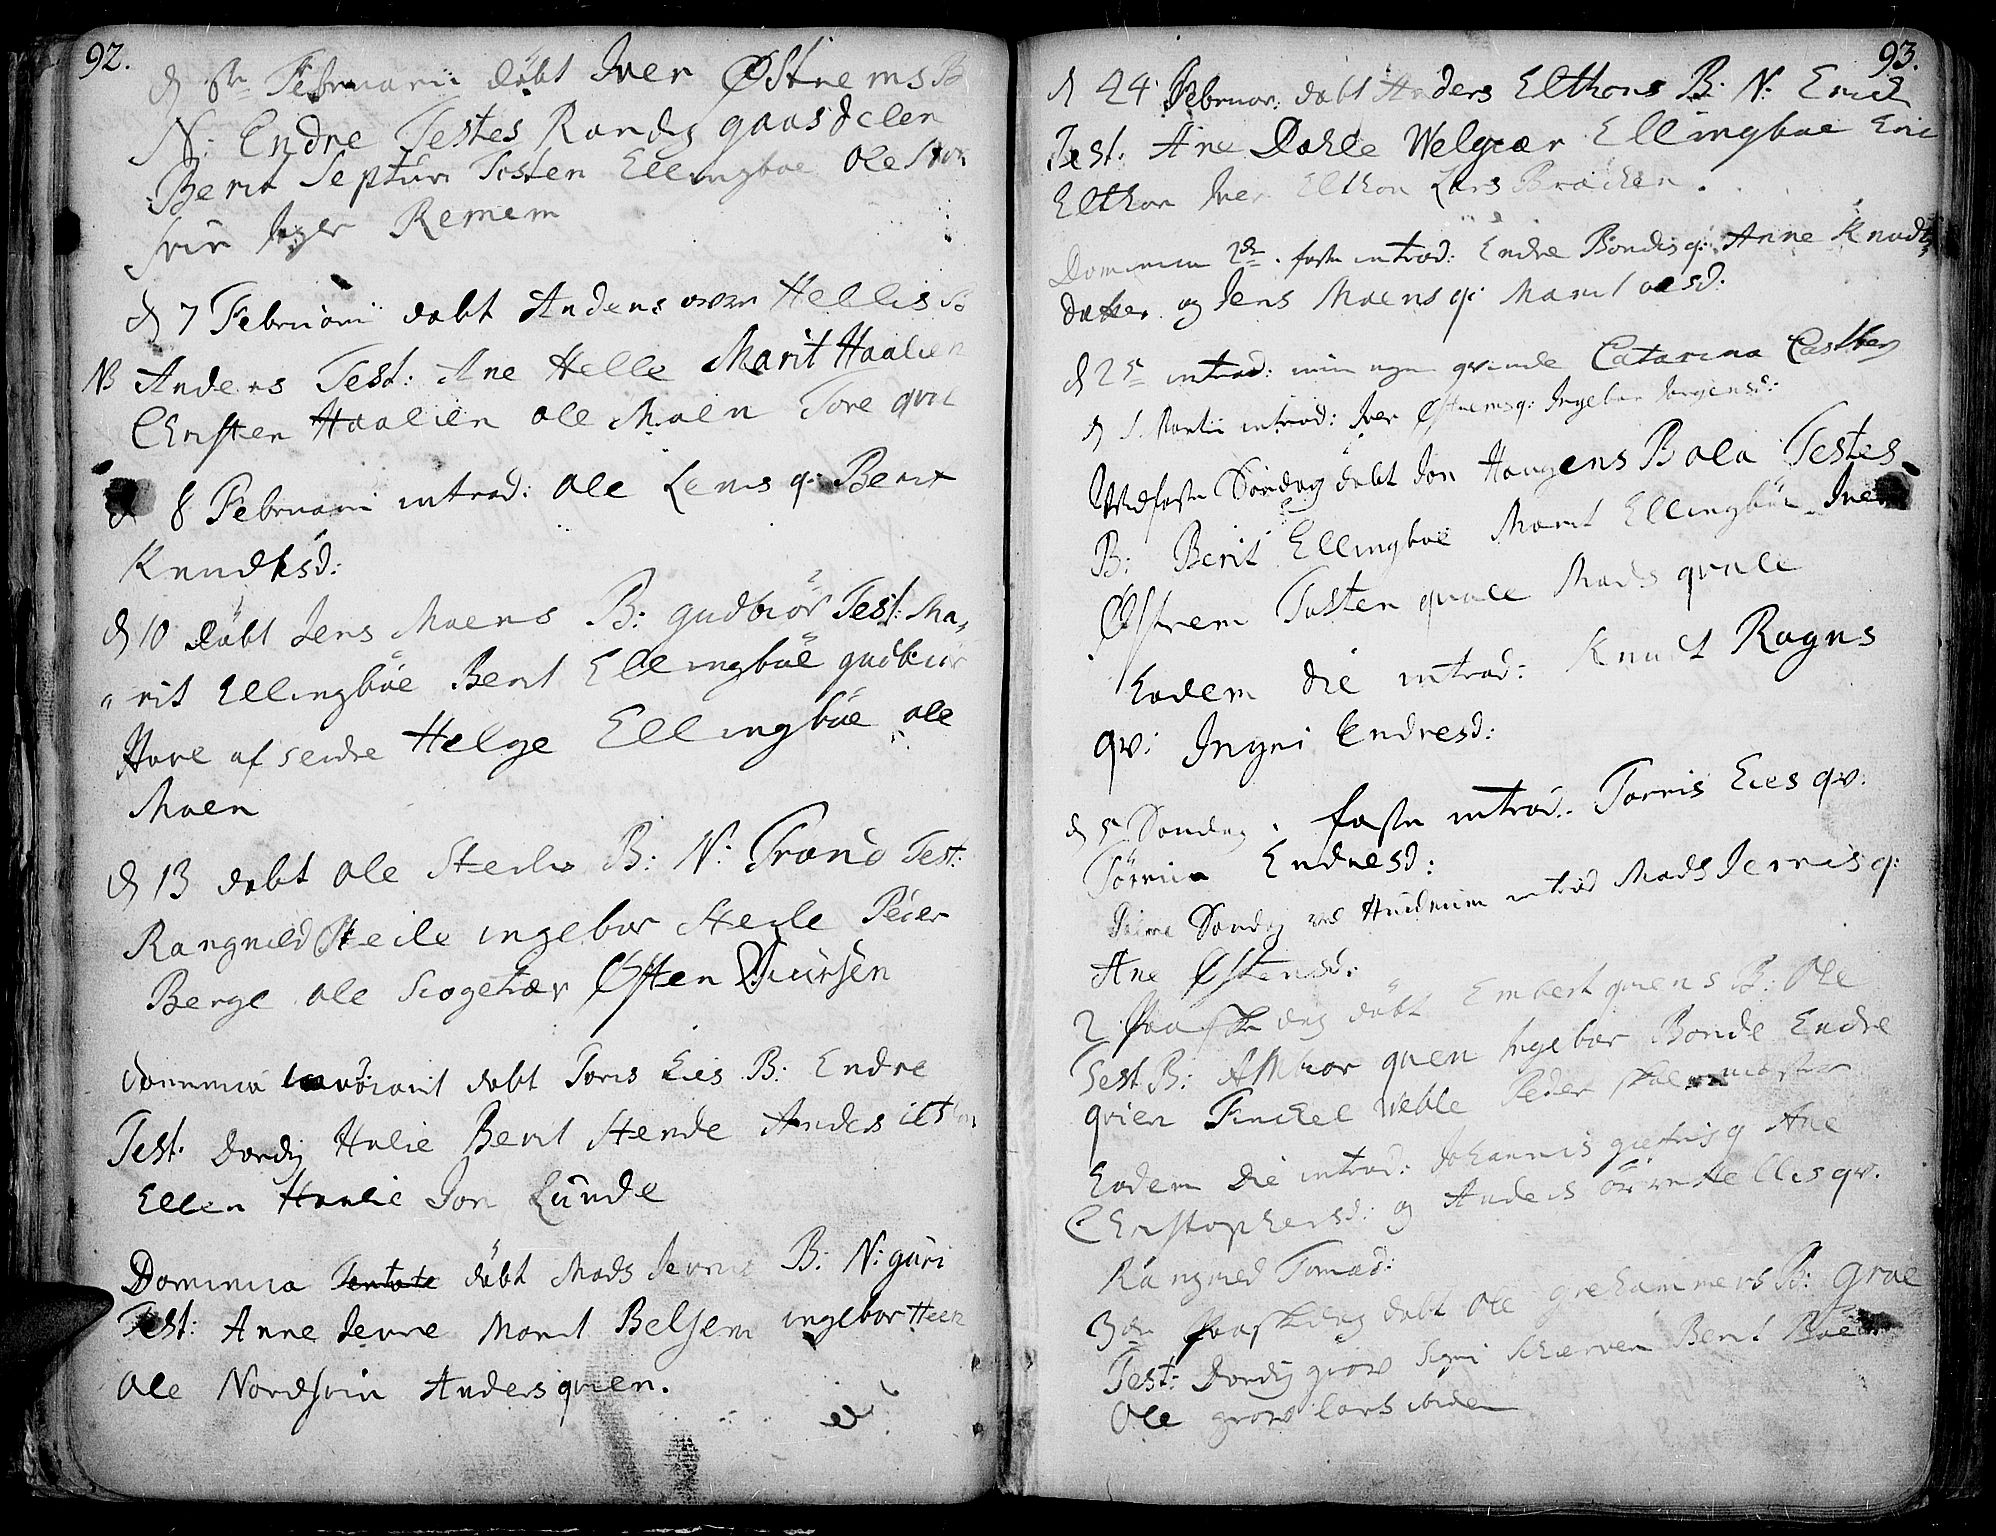 92.
d 6te Februarii döbt Iver Østrems B
N: Endre Testes Randi gaasdelen
Berit Tosten Ellingboe Ole
Inger Remem
d 7 Februarii dobt Anders Hellis B
NB Anders Test: Ane Helle Marit Haalien
Christen Haalien Ole Moen Tore qvale
d 8 Februarii introd: Ole Lems q: Berit
Knudtsd:
d 10 döbt Jens Moens B: gudbiör Test: Ma,
"rit Ellingböe Berit Ellingböe gudbiör
Hove af Helge Ellingböe Ole
Moen
d 13 dobt Ole Steiles B: N: Trond Test:
Rangnild Steile ingebor Steile Peder
Berge Ole Østen
dobt Toris Eies B: Endre
Test: Dordij Hulie Berit Stende Anders
Ellen Hærlie Jon Lunde
Dominica döbt Mads Jevnis B: N: guri
Test: Anne Jevne Marit Belsem ingebor Heen
Ole Nordsvin Anders qvien.
93.
d 24 Februar: dobt Anders Elthons B: N: Erich
Test: Ane Dahle Welgier Ellingboe Eric
Elthon Iver Elthon Lars Bräcken.
Dominica 2den faste introd: Endre Bondes q: Anne Knuds
datter og Jens Moens q: Marit olesd:
d 25 introd: min egen qvinde Catarina Castberg
d 1. Martii introd: Iver Østrems q: Ingebor Jörgensd:
Midfaste Söndag döbt Jon Haugens B Ola Testes
B: Berit Ellingboe Marit Ellingböe Iver
Østrem Tosten qvale Mads qvale
Eodem die introd: Knudt Rogns
qv: Ingri Endresd:
d 5 Sondag i faste introd: Torris Eies qv:
Endresd:
Palme Sondag introd Mads Jevnis q:
Ane Østensd:
2 Paaske dag döbt Embert qviens B: Ole
Test B: qvien Ingebor Bonde Endre
qvien Finckel Peder
Eodem Die introd: Johannis q Ane
Christophersd: og Anders Hellis qv:
Rangnild Tomasd:
3de Paaskedag dobt Ole grehammers B: groe
Test: Dordij grov Sigri Berit
Ole grov Lars ibidem